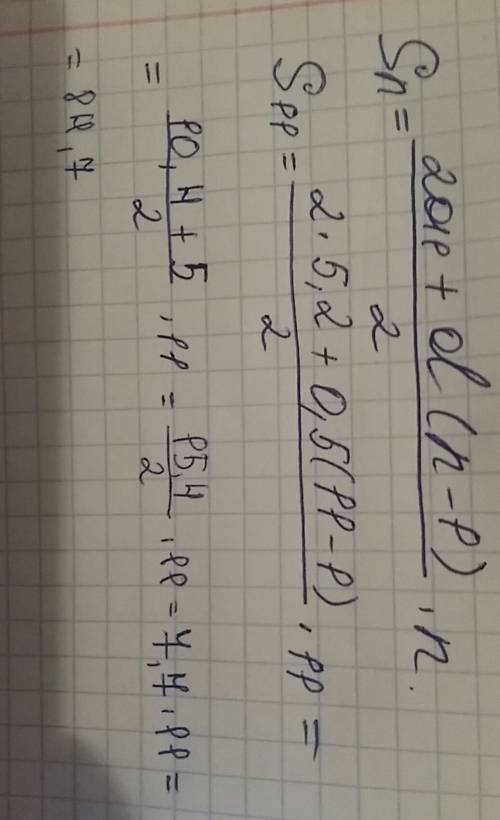 Sn = (2a1 + d(n-1))/2 · n.
S11 = (2 · 5,2 + 0,5(11-1))/2 · 11 =
= (10,4 + 5)/2 · 11 = 15,4/2 · 11 = 7,7 · 11 =
= 84,7